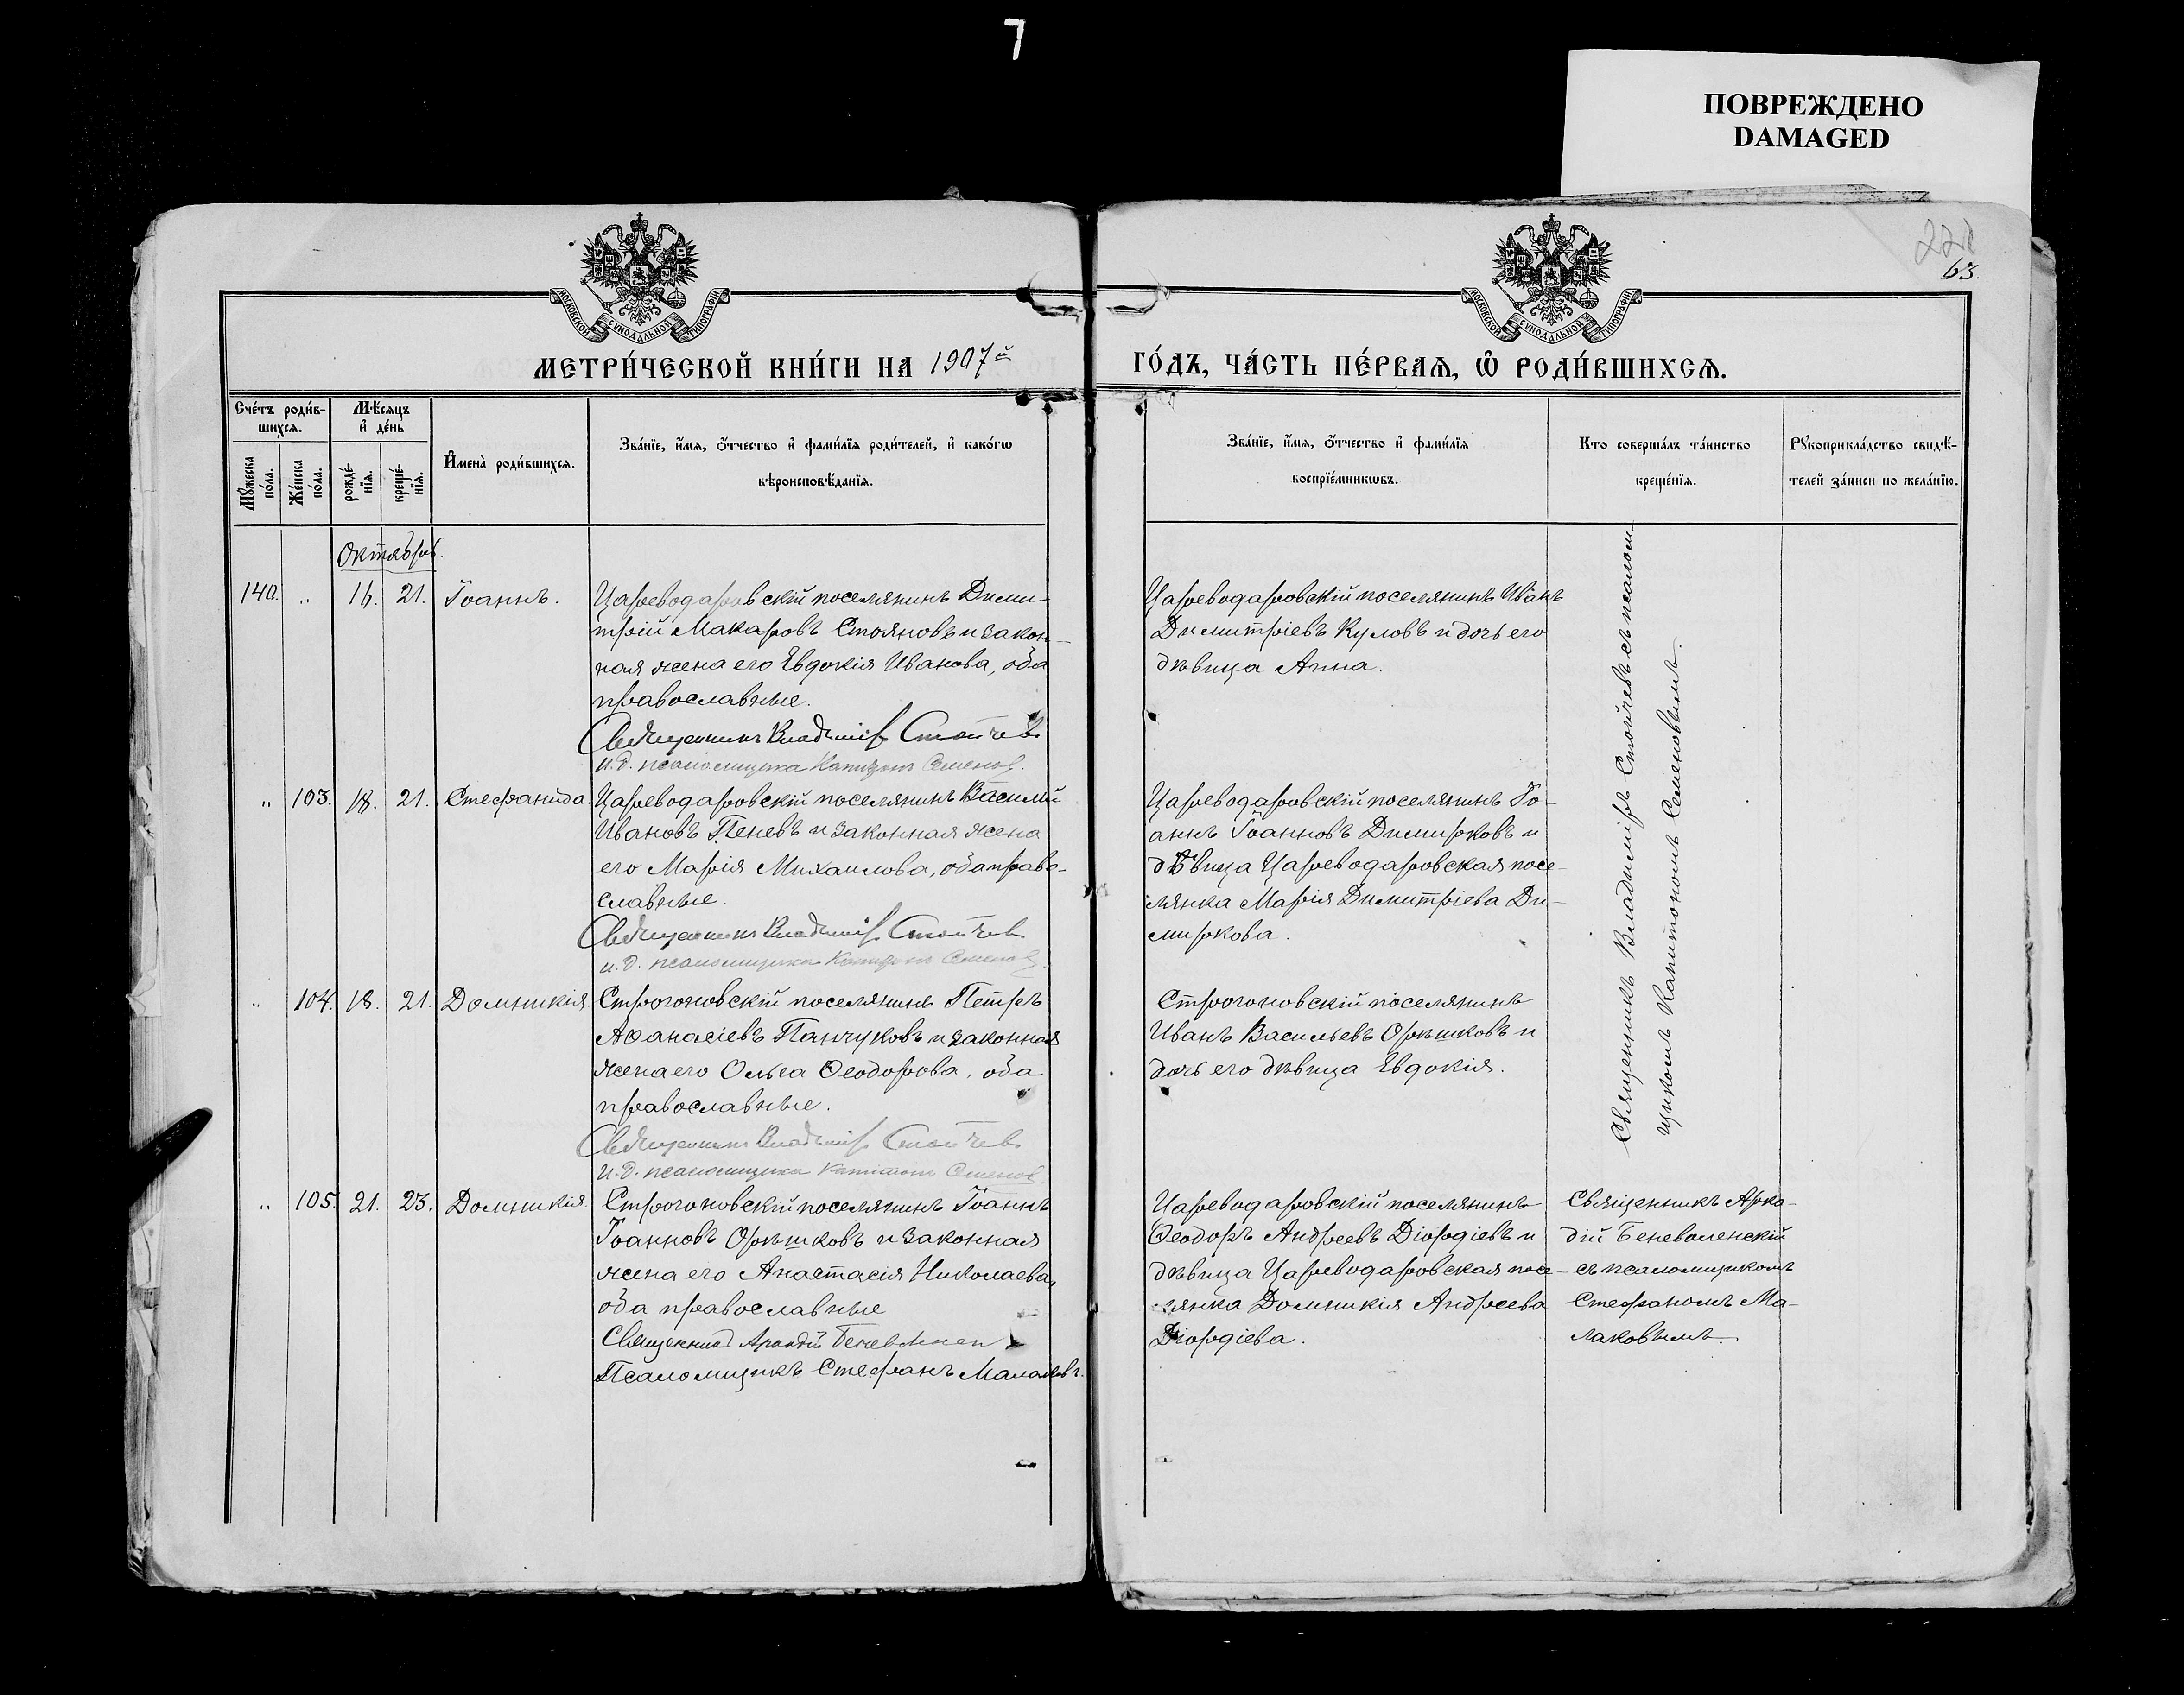 7
ПОВРЕЖДЕНО
DAMAGED
63.
МОСКОВСКОЙ СУНОДАЛЬНОЙ ТИПОГРАФІИ
МОСКОВСКОЙ СУНОДАЛЬНОЙ ТИПОГРАФІИ
МЕТРИ́ЧЕСКОЙ КНИ́ГИ НА 1907й
ГО́ДЪ, ЧА́СТЬ ПЕ́РВАѦ, Ѽ РОДИ́ВШИХСѦ.
Сче́тъ роди́в-
шихсѧ.
Мѣ́сѧцъ
и҆ де́нь
Мꙋ́жеска
по́ла.
Же́нска
по́ла.
рожде́-
нїѧ.
креще́-
нїѧ.
И҆мена̀ роди́вшихсѧ.
Зва́нїе, и҆́мѧ, ѻ҆́тчество и҆ фами́лїѧ роди́телей, и҆ како́гѡ
вѣроисповѣ́данїѧ.
Зва́нїе, и҆́мѧ, ѻ҆́тчество и҆ фами́лїѧ
воспрїе́мникѡвъ.
Кто соверша́лъ та́инство
креще́нїѧ.
Рꙋкоприкла́дство свидѣ́-
телей за́писи по жела́нїю.
Октябрь.
140. „ 16. 21. Іоаннъ.
Цареводаровскій поселянинъ Дими-
трій Макаровъ Стояновъ и закон-
ная жена его Евдокія Иванова, оба
православные.
Священникъ Владиміръ Стойчев
и. д. псаломщика Капитон Семенов.
Цареводаровскій поселянинъ Иванъ
Димитріевъ Куловъ и дочь его
дѣвица Анна.
„ 103. 18. 21. Стефанида.
Цареводаровскій поселянинъ Василій
Ивановъ Пеневъ и законная жена
его Марія Михаилова, оба право-
славные.
Священникъ Владиміръ Стойчев
и. д. псаломщика Капитон Семенов
Цареводаровскій поселянинъ Іо-
аннъ Іоанновъ Димирковъ и
дѣвица Цареводаровская посе-
лянка Марія Димитріева Ди-
миркова.
„ 104. 18. 21. Домникія.
Строгоновскій поселянинъ Петръ
Аѳанасіевъ Панчуковъ и законная
жена его Ольга Ѳеодорова, оба
православные.
Священникъ Владиміръ Стойчев
и. д. псаломщика Капитон Семенов
Строгоновскій поселянинъ
Иванъ Васильевъ Орѣшковъ и
дочь его дѣвица Евдокія.
Священникъ Владиміръ Стойчевъ съ псалом-
щикомъ Капитономъ Семеновымъ.
„ 105. 21. 23. Домникія.
Строгоновскій поселянинъ Іоаннъ
Іоанновъ Орѣшковъ и законная
жена его Анастасія Николаева,
оба православные
Священник Аркадій
Псаломщикъ Стефанъ Малаковъ.
Цареводаровскій поселянинъ
Ѳеодоръ Андреевъ Діордіевъ и
дѣвица Цареводаровская посе-
лянка Домникія Андреева
Діордіева.
Священникъ Арка-
дій Беневоленскій
съ псаломщикомъ
Стефаномъ Ма-
лаковымъ.